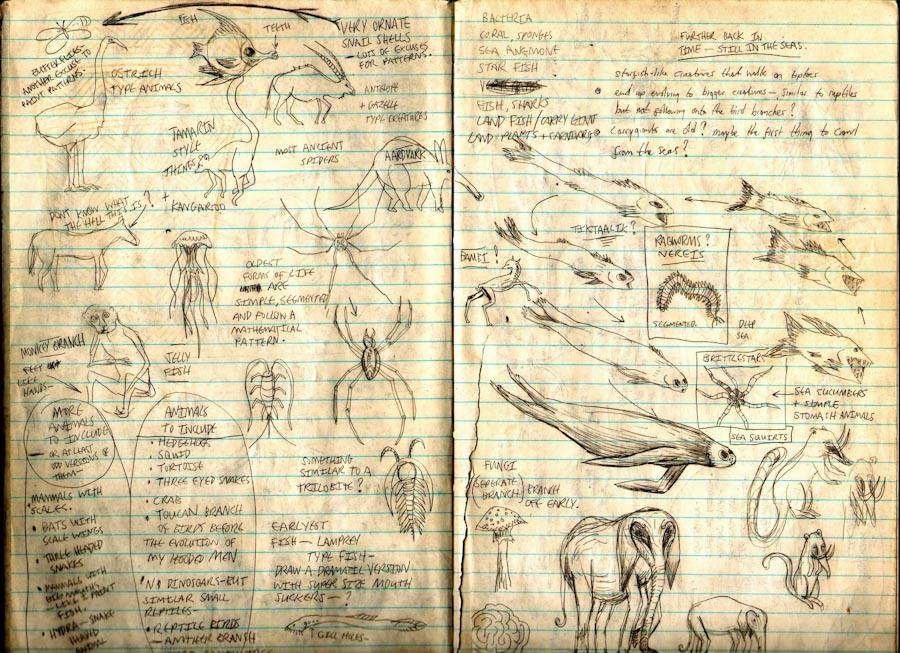 FISH
TEETH
VERY ORNATE
SNAIL SHELLS
- LOTS OF EXCUSES
FOR PATTERNS.
BUTTERFLIES.
ANOTHER EXCUSE TO
PAINT PATTERNS.
OSTRICH
TYPE ANIMALS
ANTELOPE
+ GAZELLE
TYPE CREATURES
TAMARIN
STYLE
THINGS?
+
KANGAROO
MOST ANCIENT
SPIDERS
AARDVARK
DONT KNOW WHAT
THE HELL THIS IS?
OLDEST
FORMS OF LIFE
ARE
SIMPLE, SEGMENTED
AND FOLLOW A
MATHEMATICAL
PATTERN.
MONKEY BRANCH
FEET
LIKE
HANDS
JELLY
FISH
MORE
ANIMALS
TO INCLUDE
- OR AT LEAST
ODD VERSIONS OF
THEM-
MAMMALS WITH
SCALES.
• BATS WITH
SCALE WINGS
• THREE HEADED
SNAKES
• MAMMALS WITH
BIG MOUTHS
LIKE I PAINT
FISH.
• HYDRA - SNAKE
HEADED
ANIMAL
ANIMALS
TO INCLUDE
• HEDGEHOGS
• SQUID
• TORTOISE
• THREE EYED SNAKES
• CRAB
• TOUCAN BRANCH
OF BIRDS BEFORE
THE EVOLUTION OF
MY HOODED MEN
• NO DINOSOARS - BUT
SIMILAR SMALL
REPTILES -
• REPTILE BIRDS
- ANOTHER BRANSH
SOMETHING
SIMILAR TO A
TRILOBITE?
EARLYEST
FISH - LAMPREY
TYPE FISH -
DRAW A DRAMATIC VERSION
WITH SUPER SIZE MOUTH
SUCKERS - ?
GILL HOLES -
BACTERIA
CORAL, SPONGES
SEA ANEMONE
STAR FISH
FISH, SHARKS
LAND FISH/CARRY GIANT
LAND PLANTS +
FURTHER BACK IN
TIME - STILL IN THE SEAS.
starfish-like creatures that walk on tiptoes
end up evolving to bigger creatures - similar to reptiles
but not following onto the bird branches?
are old? maybe the first thing to crawl
from the seas?
TIKTAALIK?
RAGWORMS?
NEREIS
SEGMENTED
DEEP
SEA.
BAMBI?
BRITTLESTARS
SEA SUCUMBERS
+ SIMPLE
STOMATH ANIMALS
SEA SQUIRTS
FUNGI
SEPERATE
BRANCH
BRANCH
OFF EARLY.